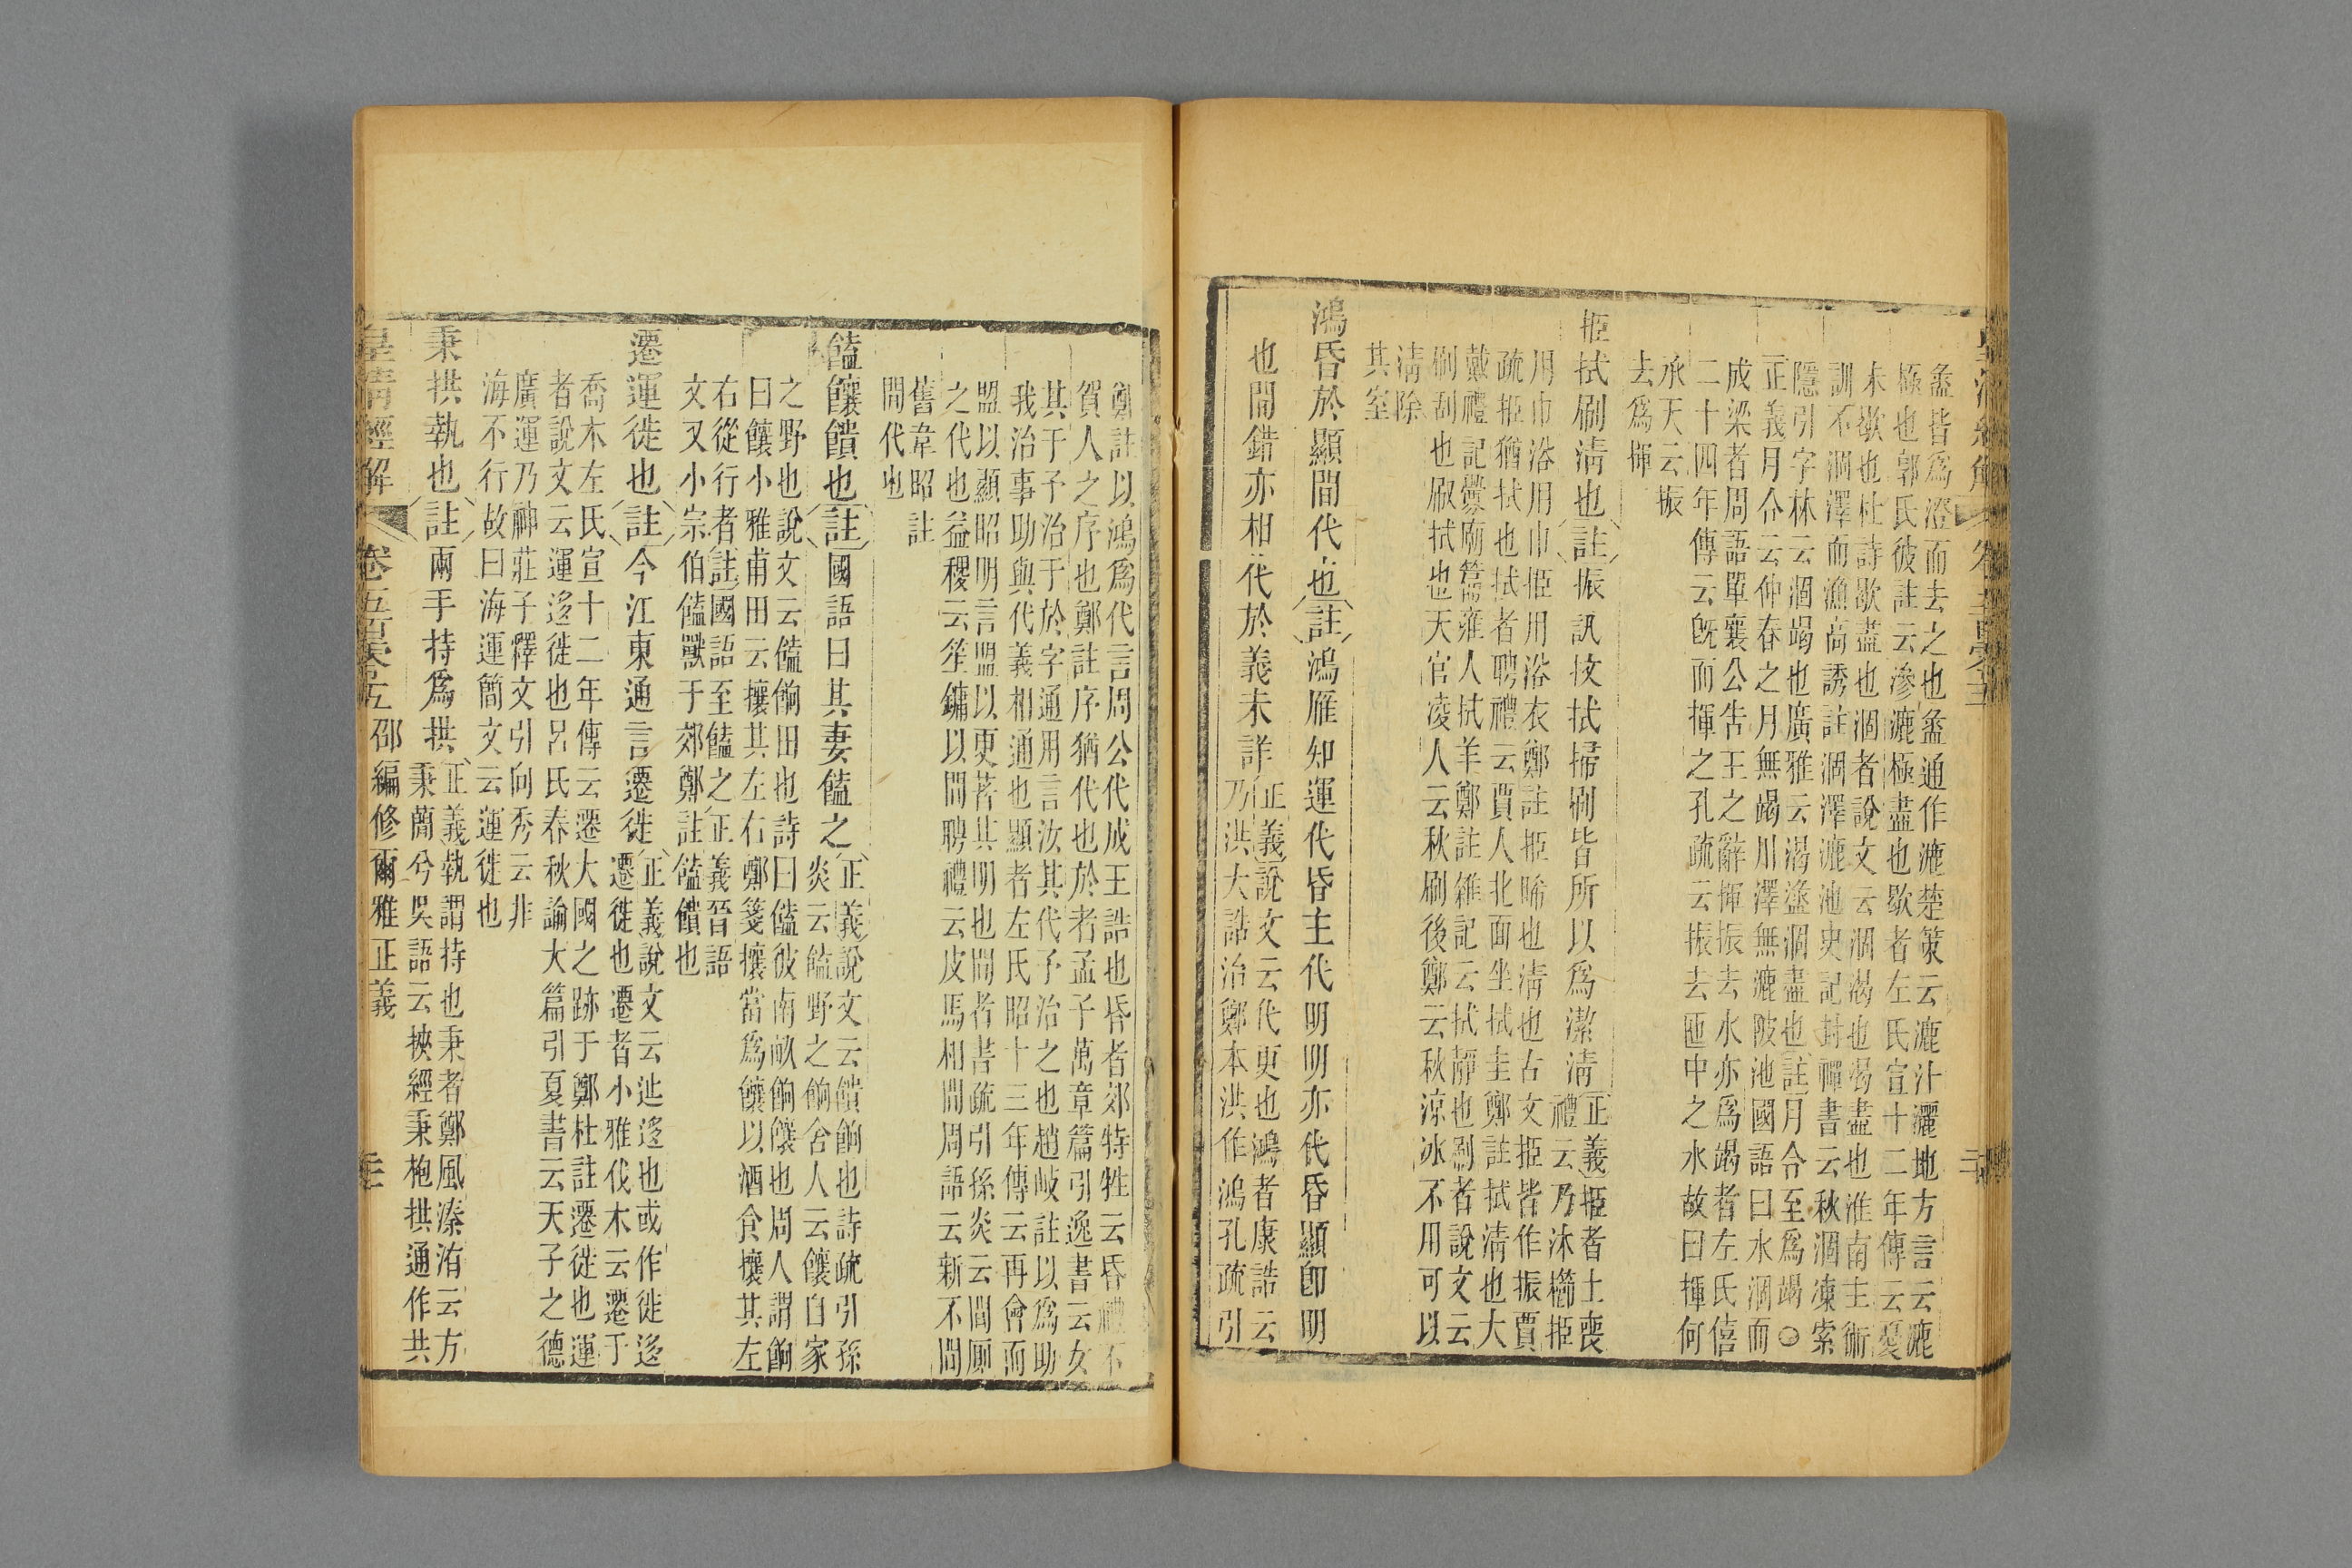 盝皆爲澄而去之也盝通作漉楚策云漉汁灑地方言云漉
極也郭氏彼註云滲漉極盡也歇者左氏宣十二年傳云憂
未歇也杜詩歇盡也涸者說文云涸渴也渴盡也淮南主術
訓不涸澤而漁高誘註涸澤漉池史記封禪書云秋涸凍索
隱引字林云涸竭也廣雅云渴盡涸盡也註月令至爲竭○
正義月令云仲春之月無竭川澤無漉陂池國語曰水涸而
成梁者周語單襄公告王之辭揮振去水亦爲竭者左氏僖
二十四年傳云旣而揮之孔疏云振去匜中之水故曰揮何
承天云振
去爲揮
挋拭刷清也註振訊抆拭掃刷皆所以爲潔清正義挋者士喪
禮云乃沐櫛挋
用巾浴用巾挋用浴衣鄭註挋晞也清也古文挋皆作振賈
疏挋猶拭也拭者聘禮云賈人北面坐拭圭鄭註拭清也大
戴禮記釁廟篇雍人拭羊鄭註雜記云拭靜也刷者說文云
刷刮也㕞拭也天官凌人云秋刷後鄭云秋涼冰不用可以
清除
其室
鴻昏於顯間代也註鴻雁知運代昏主代明明亦代昏顯卽明
也間錯亦相代於義未詳正義說文云代更也鴻者康誥云
乃洪大誥治鄭本洪作鴻孔疏引
鄭註以鴻爲代言周公代成王誥也昏者郊特牲云昏禮不
賀人之序也鄭註序猶代也於者孟子萬章篇引逸書云女
其于予治于於字通用言汝其代予治之也趙岐註以爲助
我治事助與代義相通也顯者左氏昭十三年傳云再會而
盟以顯昭明言盟以更著其明也間者書疏引孫炎云間厠
之代也益稷云笙鏞以間聘禮云皮馬相間周語云新不間
舊韋昭註
間代也
饁饟饋也註國語曰其妻饁之正義說文云饋餉也詩疏引孫
炎云饁野之餉舍人云饟自家
之野也說文云饁餉田也詩曰饁彼南畝餉饟也周人謂餉
曰饟小雅甫田云攘其左右鄭箋攘當爲饟以酒食攘其左
右從行者註國語至饁之正義晉語
文又小宗伯饁獸于郊鄭註饁饋也
遷運徙也註今江東通言遷徙正義說文云辿迻也或作徙迻
遷徙也遷者小雅伐木云遷于
喬木左氏宣十二年傳云遷大國之跡于鄭杜註遷徙也運
者說文云運迻徙也呂氏春秋諭大篇引夏書云天子之德
廣運乃神莊子釋文引向秀云非
海不行故曰海運簡文云運徙也
秉拱執也註兩手持爲拱正義執謂持也秉者鄭風溱洧云方
秉蕑兮吳語云挾經秉枹拱通作共
皇淸經解 卷五百炅五 邵編修爾雅正義